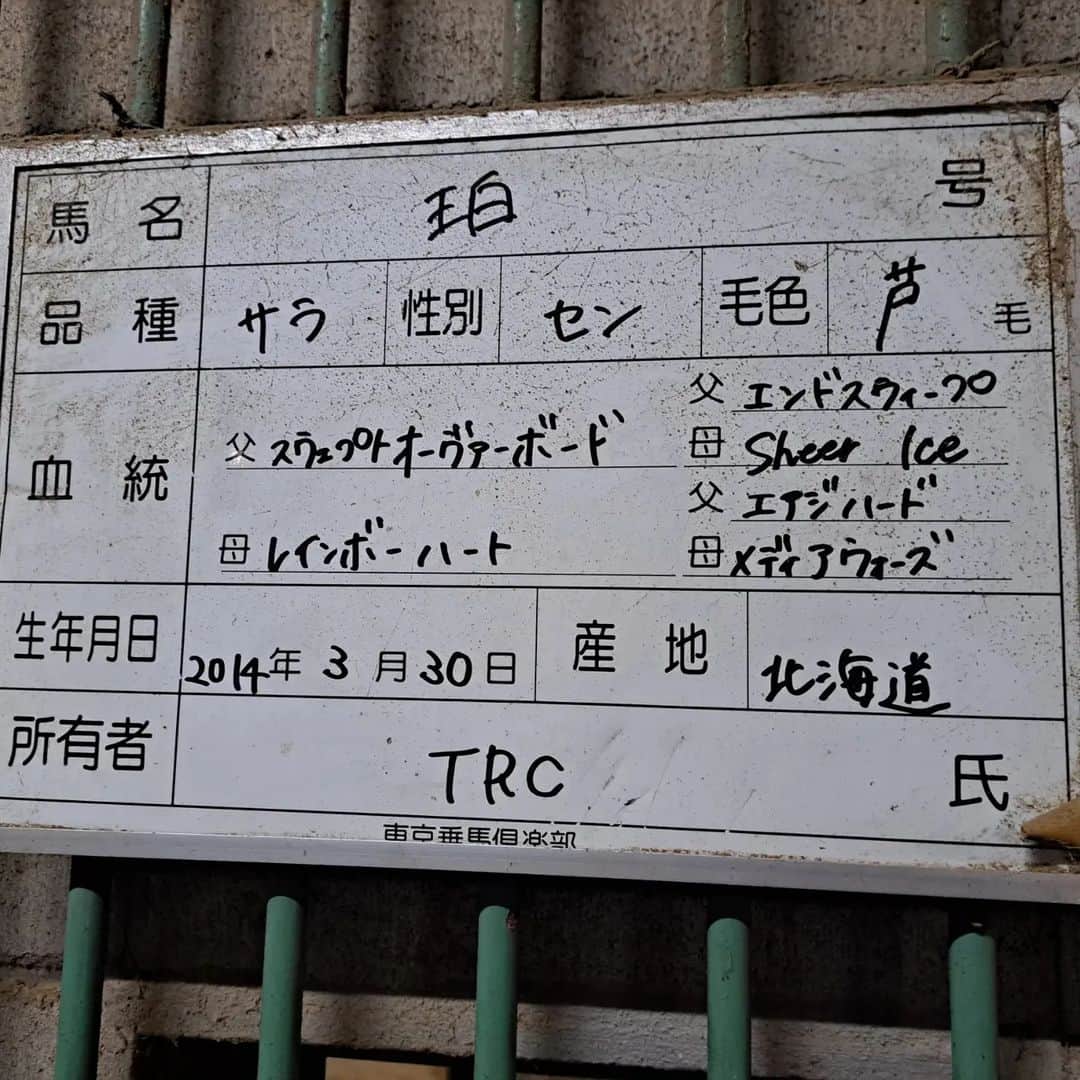 馬名 珀 号
品種 サラ 性別 セン 毛色 芦 毛
血統
父 スウェプトオーヴァーボード
父 エンドスウィープ
母 Sheer Ice
母 レインボーハート
父 エイジハード
母 メディアウォーズ
生年月日 2014年 3月 30日 産地 北海道
所有者 TRC 氏
東京乗馬倶楽部